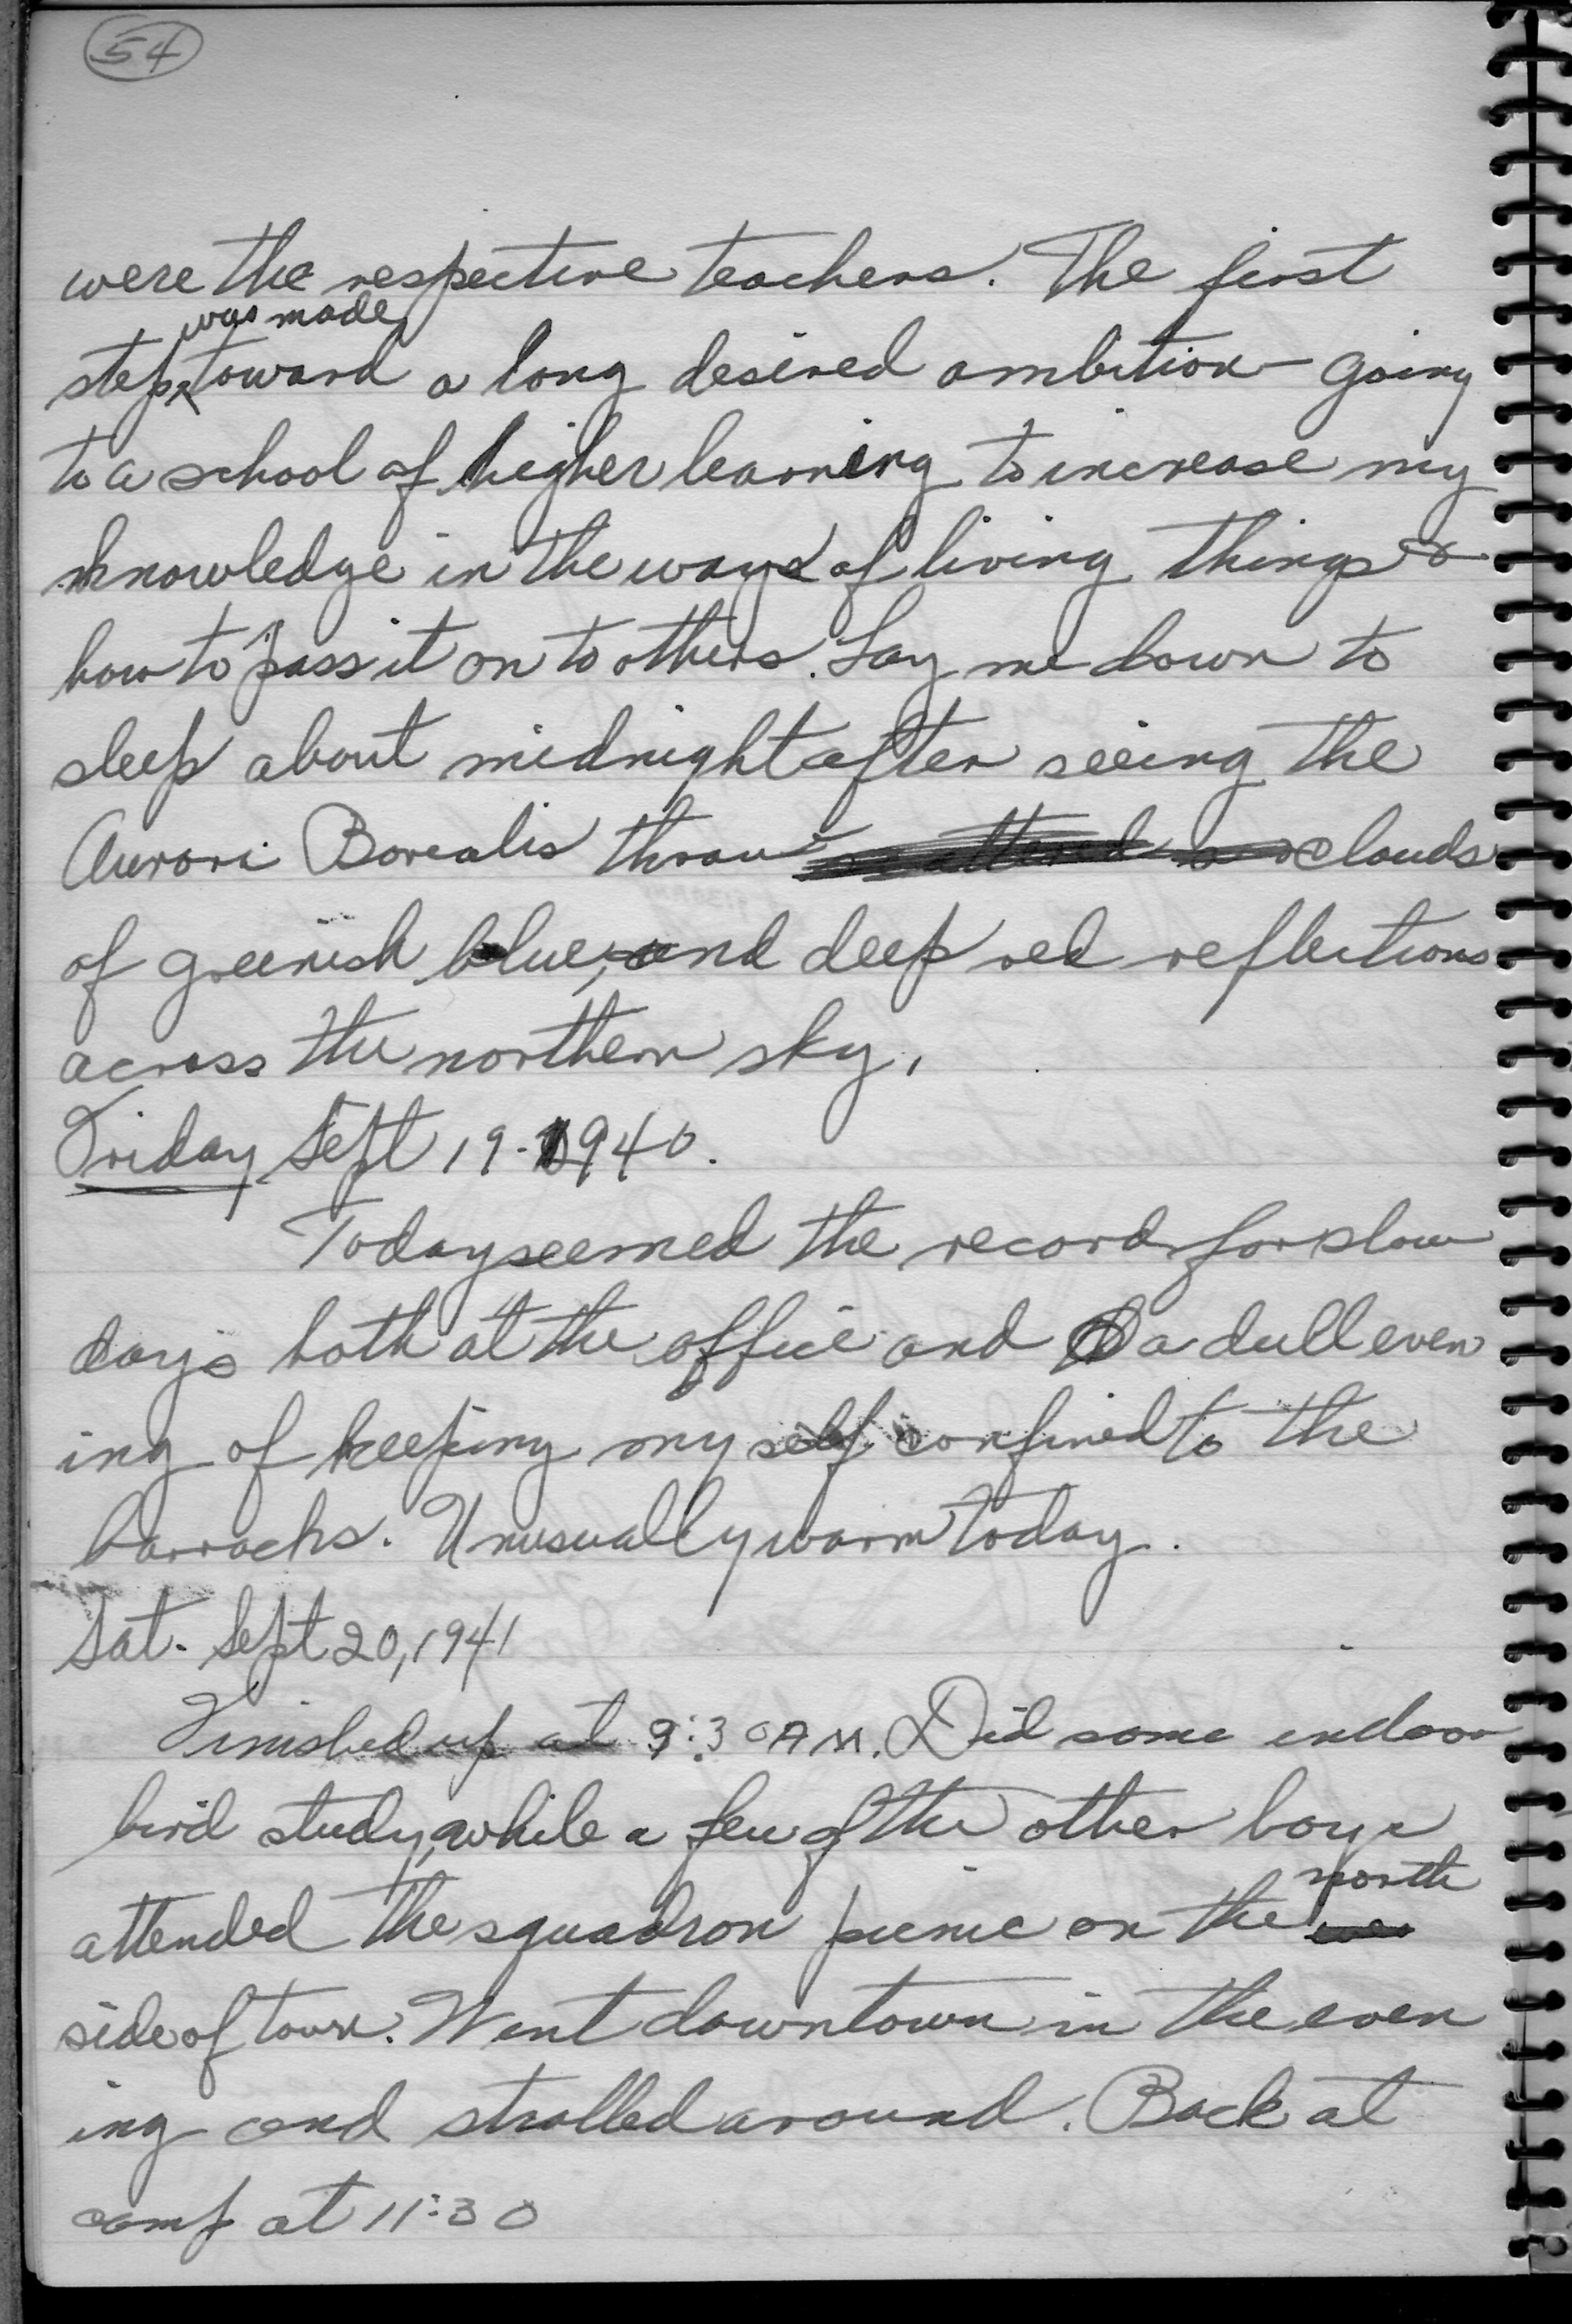 54
were the respective teachers. The first
was made
step toward a long desired ambition - going
to a school of higher learning to increase my
knowledge in the ways of living things &
how to pass it on to others. Lay me down to
sleep about midnight after seeing the
Aurori Borealis throw clouds
of greenish blue, and deep red reflections
across the northern sky.
Friday Sept 19 - 1940.
Today seemed the record for slow
days both at the office and a dull even
ing of keeping my self confined to the
barracks. Unusually warm today.
Sat. Sept 20, 1941
Finished up at 9:30 AM. Did some indoor
bird study, while a few of the other boys
north
attended the squadron picnic on the
side of town. Went downtown in the even
ing and strolled around. Back at
camp at 11:30